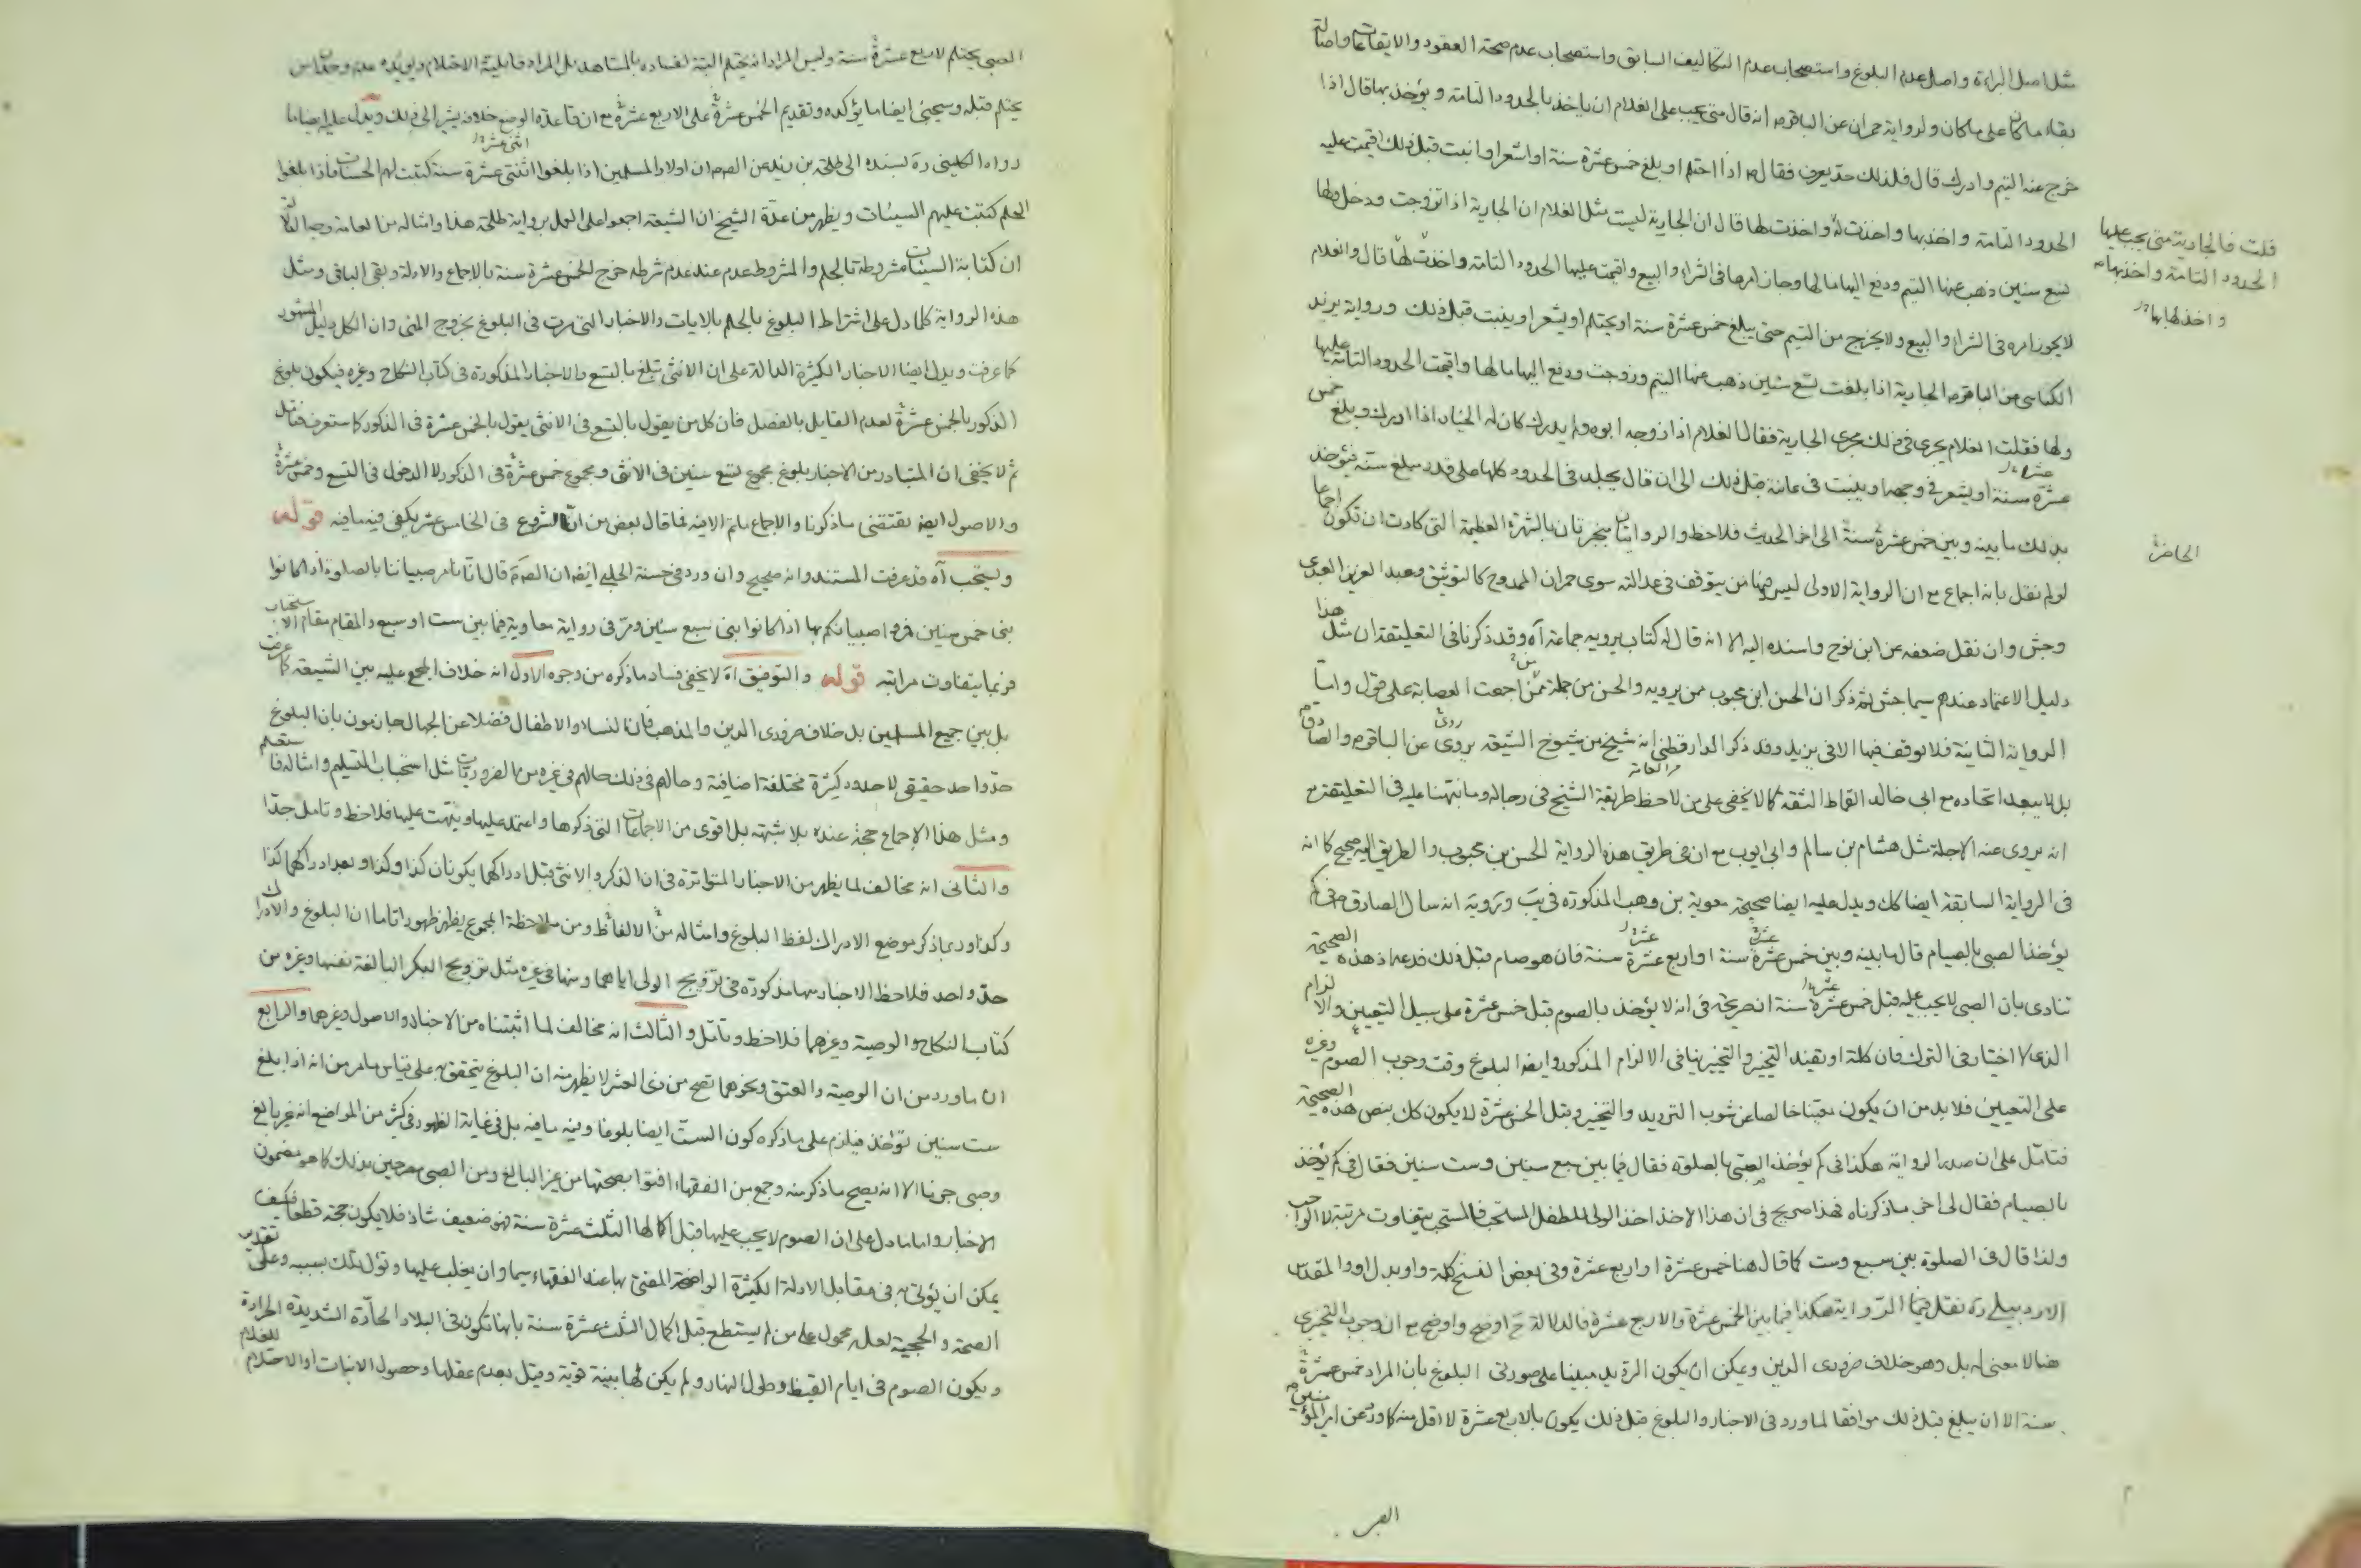 مثل اصل البراءة واصل عدم البلوغ واستصحاب عدم التكاليف السابق واستصحاب عدم صحة العقود والايقاعات واصالة
بقاء ما كان على ما كان ولرواية حمران عن الباقرم انه قال متى يجب على الغلام ان ياخذ بالحدود التامة ويؤخذ بها قال اذا
خرج عنه اليتم وادرك قال فلذلك حد يعرف فقال م اذا احتلم او بلغ خمس عشرة سنة او اشعر او انبت قبل ذلك اقيمت عليه
الحدود التامة واخذ بها واخذت له واخذت لها قال ان الجارية ليست مثل الغلام ان الجارية اذا تزوجت ودخل ولها
قلت فالجارية متى يجب عليها
الحدود التامة واخذ بها
واخذ لها بها
تسع سنين ذهب عنها اليتم ودفع اليها مالها وجاز امرها في الشراء والبيع واقيمت عليها الحدود التامة واخذت لها قال والغلام
لا يجوز امره في الشراء والبيع ولا يخرج من اليتم حتى يبلغ خمس عشرة سنة او يحتلم او يشعر او ينبت قبل ذلك ورواية يزيد
الكناسي عن الباقرم الجارية اذا بلغت تسع سنين ذهب عنها اليتم وزوجت ودفع اليها مالها واقيمت الحدود التامة عليها
ولها فقلت الغلام يجرى في ذلك مجرى الجارية فقال الغلام اذا زوجه ابوه ولم يدرك كان له الخيار اذا ادرك وبلغ خمس
عشرة سنة او يشعر في وجهه او ينبت في عانته قبل ذلك الى ان قال يجلد في الحدود كلها على قدر مبلغ سنه فيؤخذ
بذلك ما بينه وبين خمس عشرة سنة الى اخر الحديث فلاحظ والروايتان منجبرتان بالشهرة العظيمة التي كادت ان تكون اجماعا
الحاضرة
لو لم نقل بانه اجماع مع ان الرواية الاولى ليس فيها من يتوقف في عدالته سوى حمران الممدوح كالتوثيق وعبد العزيز العبدي
وجش وان نقل ضعفه عن ابن نوح واسنده اليه الا انه قال له كتاب يرويه جماعة آه وقد ذكرنا في التعليقة ان مثل هذا
دليل الاعتماد عندهم سيما جش ثم ذكر ان الحسن ابن محبوب ممن يرويه والحسن من جملة ممن اجمعت العصابة على قول واما
الرواية الثانية فلا توقف فيها الا في يزيد وقد ذكر الدارقطني انه شيخ من شيوخ الشيعة يروى عن الباقرم والصادق م
بل لا يبعد اتحاده مع ابي خالد القماط الثقة كما لا يخفى على من لاحظ طريقة الشيخ في رجاله وما نبهنا عليه في التعليقة مع
انه يروى عنه الاجلة مثل هشام بن سالم وابي ايوب مع ان في طريق هذه الرواية الحسن بن محبوب والطريق اليه صحيح كما انه
في الرواية السابقة ايضا كك ويدل عليه ايضا صحيحة معوية بن وهب المذكورة في يب انه سال الصادق م في كم
يؤخذ الصبي بالصيام قال ما بينه وبين خمس عشرة سنة او اربع عشرة سنة فان هو صام قبل ذلك فدعه اذ هذه الصحيحة
تنادى بان الصبي لا يجب عليه قبل خمس عشرة سنة انها صريحة في انه لا يؤخذ بالصوم قبل خمس عشرة على سبيل التعيين والالزام
الذي لا اختيار في الترك فان كلمة او تفيد التخيير والتخيير ينافى الالزام المذكور وايضا البلوغ وقت وجوب الصوم وغيره
على التعيين فلا بد من ان يكون معينا خالصا عن شوب الترديد والتخيير وقبل الخمس عشرة لا يكون كك بنص هذه الصحيحة
فتامل على ان صدر الرواية هكذا في كم يؤخذ الصبي بالصلوة فقال فيما بين سبع سنين وست سنين فقال في كم يؤخذ
بالصيام فقال الى اخر ما ذكرناه فهذا صريح في ان هذا الاخذ اخذ الولي للطفل المستحب فالمستحب يتفاوت مرتبة لا الواجب
ولذا قال في الصلوة بين سبع وست كما قال هنا خمس عشرة او اربع عشرة وفي بعض النسخ كلمة واو بدل او والمقدس
الاردبيلي ره نقل فيما الرواية هكذا فيما بين الخمس عشرة والاربع عشرة فالدلالة ح اوضح واوضح مع ان وجوب التخييرى
هنا لا معنى له بل وهو خلاف ضرورى الدين ويمكن ان يكون الترديد مبنيا على صورتى البلوغ بان المراد خمس عشرة
سنة الا ان يبلغ قبل ذلك موافقا لما ورد في الاخبار والبلوغ قبل ذلك يكون بالاربع عشرة لا اقل منه كما ورد عن امير المؤمنين م
الصبي
الصبي يحتلم لاربع عشرة سنة وليس المراد انه يحتلم البتة لفساده بالمشاهد بل المراد قابلية الاحتلام ويؤيده عدم وجدان من
يحتلم قبله وسيجئ ايضا ما يؤكده وتقديم الخمس عشرة على الاربع عشرة مع ان قاعدة الوضع خلافه يشير الى ذلك ويدل عليه ايضا ما
رواه الكليني ره بسنده الى طلحة بن زيد عن الصم ان اولاد المسلمين اذا بلغوا اثنتى عشرة سنة كتبت لهم الحسنات فاذا بلغوا
الحلم كتبت عليهم السيئات ويظهر من عدة الشيخ ان الشيعة اجمعوا على العمل برواية طلحة هذا وامثاله من العامة وجه الدلالة
ان كتابة السيئات مشروطة بالحلم والمشروط عدم عند عدم شرطه خرج الخمس عشرة سنة بالاجماع والادلة وبقى الباقى ومثل
هذه الرواية كلما دل على اشتراط البلوغ بالحلم بالايات والاخبار التي مرت في البلوغ بخروج المنى وان الكل دليل المشهور
كما عرفت ويدل ايضا الاخبار الكثيرة الدالة على ان الانثى تبلغ بالتسع والاخبار المذكورة في كتاب النكاح وغيره فيكون بلوغ
الذكور بالخمس عشرة لعدم القايل بالفصل فان كل من يقول بالتسع في الانثى يقول بالخمس عشرة في الذكور كما ستعرف فتامل
ثم لا يخفى ان المتبادر من الاخبار بلوغ مجموع تسع سنين في الانثى ومجموع خمس عشرة في الذكور لا الدخول في التسع وخمس عشرة
والاصول ايضا يقتضى ما ذكرنا والاجماع ما تم الا فيه فما قال بعض من ان الشروع في الخامس عشر يكفى فيه ما فيه قوله
ويستحب آه قد عرفت المستند وانه صحيح وان ورد في حسنة الحلبي ايضا ان الصم قال انا نامر صبياننا بالصلوة اذا كانوا
بنى خمس سنين فمروا صبيانكم بها اذا كانوا بنى سبع سنين ومر في رواية معاوية فيما بين ست او سبع والمقام مقام الاستحباب
فربما يتفاوت مراتبه قوله والتوفيق آه لا يخفى فساد ما ذكره من وجوه الاول انه خلاف المجمع عليه بين الشيعة كما عرفت
بل بين جميع المسلمين بل خلاف ضرورى الدين والمذهب فان النساء والاطفال فضلا عن الجهال جازمون بان البلوغ
حد واحد حقيقى لا حدود كثيرة مختلفة اضافية وحالهم في ذلك حالهم في غيره من الضروريات مثل استحباب التسليم وامثاله فا ستعلم
ومثل هذا الاجماع حجة عنده بلا شبهة بل اقوى من الاجماعات التي ذكرها واعتمد عليها ونبهت عليها فلاحظ وتامل جدا
والثانى انه مخالف لما يظهر من الاخبار المتواترة في ان الذكر والانثى قبل ادراكهما يكونان كذا وكذا وبعد ادراكهما كذا
وكذا وربما ذكر موضع الادراك لفظ البلوغ وامثاله من الالفاظ ومن ملاحظة المجموع يظهر ظهورا تاما ان البلوغ والادراك
حد واحد فلاحظ الاخبار منها مذكورة في تزويج الولى اياهما ومنها في غيره مثل تزويج البكر البالغة نفسها وغيره من
كتاب النكاح والوصية وغيرهما فلاحظ وتامل والثالث انه مخالف لما اثبتناه من الاخبار والاصول وغيرهما والرابع
ان ما ورد من ان الوصية والعتق ونحوهما تصح من ذى العشر لا يظهر منه ان البلوغ يتحقق به على قياس ما مر من انه اذا بلغ
ست سنين يؤخذ فيلزم على ما ذكره كون الست ايضا بلوغا وفيه ما فيه بل في غاية الظهور في كثير من المواضع انه غير بالغ
وصبى جزنا الا انه يصح ما ذكر منه وجمع من الفقهاء افتوا بصحتها من غير البالغ ومن الصبى مصرحين بذلك كما هو مضمون
الاخبار واما ما دل على ان الصوم لا يجب عليها قبل اكمالها الثلث عشرة سنة فهو ضعيف شاذ فلا يكون حجة قطعا فكيف
يمكن ان يؤتى به في مقابل الادلة الكثيرة الواضحة المفتى بها عند الفقهاء سيما وان يغلب عليها وتؤل تلك بسببه وعلى تقدير
الصحة والحجية لعله محمول على من لم يستطع قبل اكمال الثلث عشرة سنة بانها تكون في البلاد الحارة الشديدة الحرارة
ويكون الصوم في ايام القيظ وطول النهار ولم يكن لها بنية قوية وقيل بعدم عقلها وحصول الانبات او الاحتلام للغلام